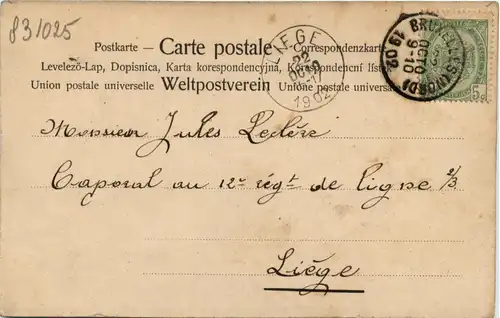 831025
Postkarte – Carte postale – Correspondenzkarte
Levelező-Lap, Dopisnica, Karta korespondencyjna, Korespondenční lístek
Union postale universelle Weltpostverein Unione postale universale
LIEGE
22
OCTO
1902
BRUXELLES (NORD)
OCTO
9-10
1902
5c
Monsieur Jules Leclère
Caporal au 12e régt de ligne 2/3
Liége